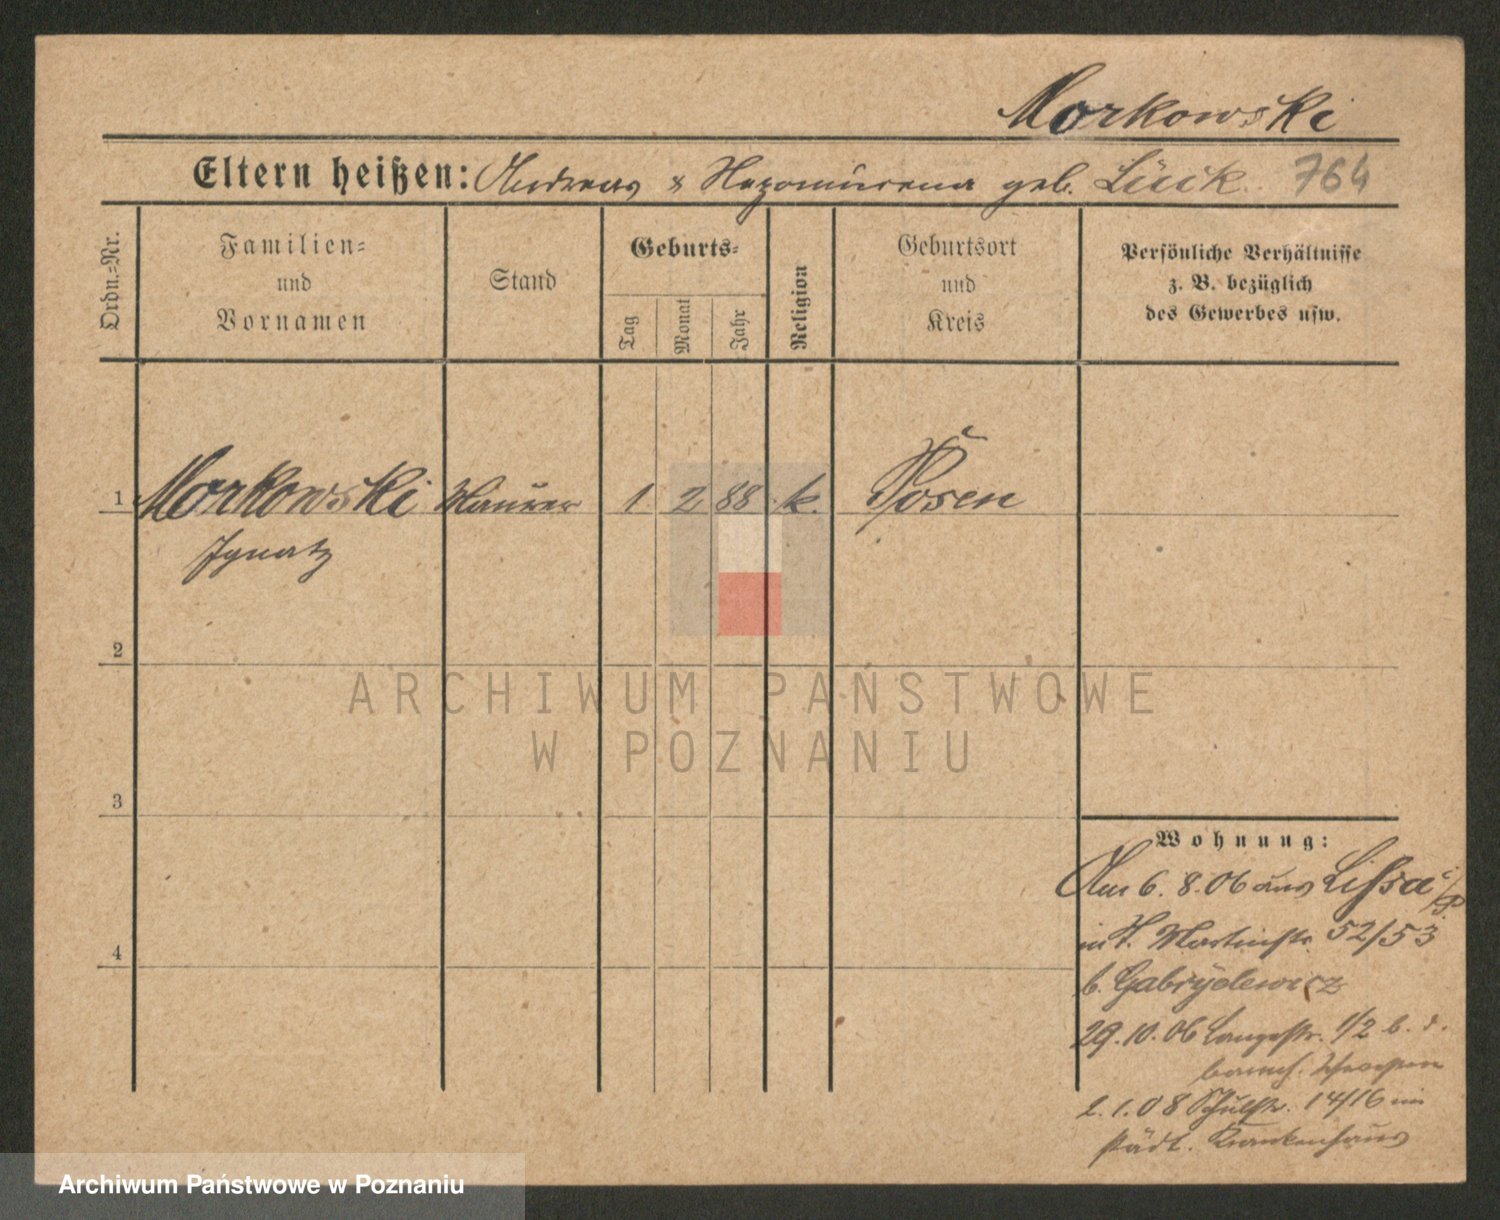 Morkowski
Eltern heißen: Andreas & Nepomucena geb. Lück 764
Ordn.-Nr.
Familien-
und
Vornamen
Stand
Geburts-
Tag
Monat
Jahr
Religion
Geburtsort
und
Kreis
Persönliche Verhältnisse
z. B. bezüglich
des Gewerbes usw.
1 Morkowski Maurer 1 2 88 k. Posen
Ignatz
2
3
4
Wohnung:
Am 6. 8. 06 aus Lissa i/P.
Martinstr. 52/53
b. Gabryelewicz
29. 10. 06 Langestr. 1/2 b. d.
barmh. Schwestern
2. 1. 08 Schulstr. 14/16 im
städt. Krankenhaus
ARCHIWUM PAŃSTWOWE
W POZNANIU
Archiwum Państwowe w Poznaniu